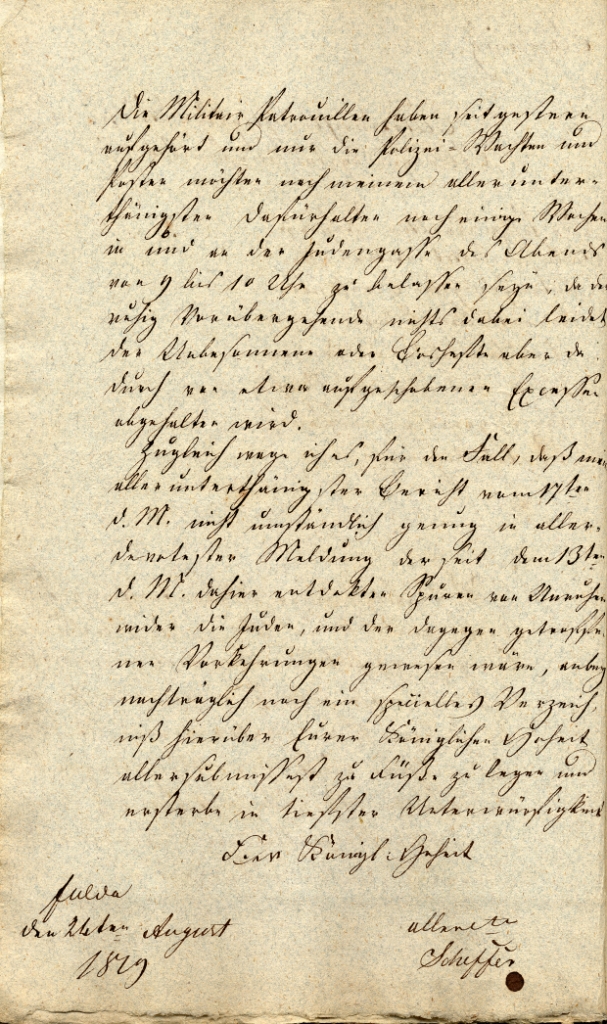 Die Militair Patrouillen haben seit gestern
aufgehört und nur die Polizei-Wachten und
Posten möchten nach meinem allerunter-
thänigsten Dafürhalten noch einige Wochen
in und an der Judengasse des Abends
von 9 bis 10 Uhr zu belassen seyn, da der
ruhig Vorübergehende nichts dabei leidet
der Unbesonnene oder Boshafte aber da
durch von etwa aufgeschobenen Excessen
abgehalten wird.
Zugleich wage ich es, für den Fall, daß mein
allerunterthänigster Bericht vom 17ten
d. M. nicht umständlich genug in aller-
devotester Meldung der seit dem 13ten
d. M. dahier entdekten Spuren von Unruhen
wider die Juden, und der dagegen getroffe
nen Vorkehrungen gewesen wäre, anbey
nachträglich noch ein specielles Verzeich
niß hierüber Eurer Königlichen Hoheit
allersubmissest zu Füße zu legen und
ersterbe in tiefster Unterwürfigkeit
Königl: Hoheit
Fulda
den August
1819
Scheffer